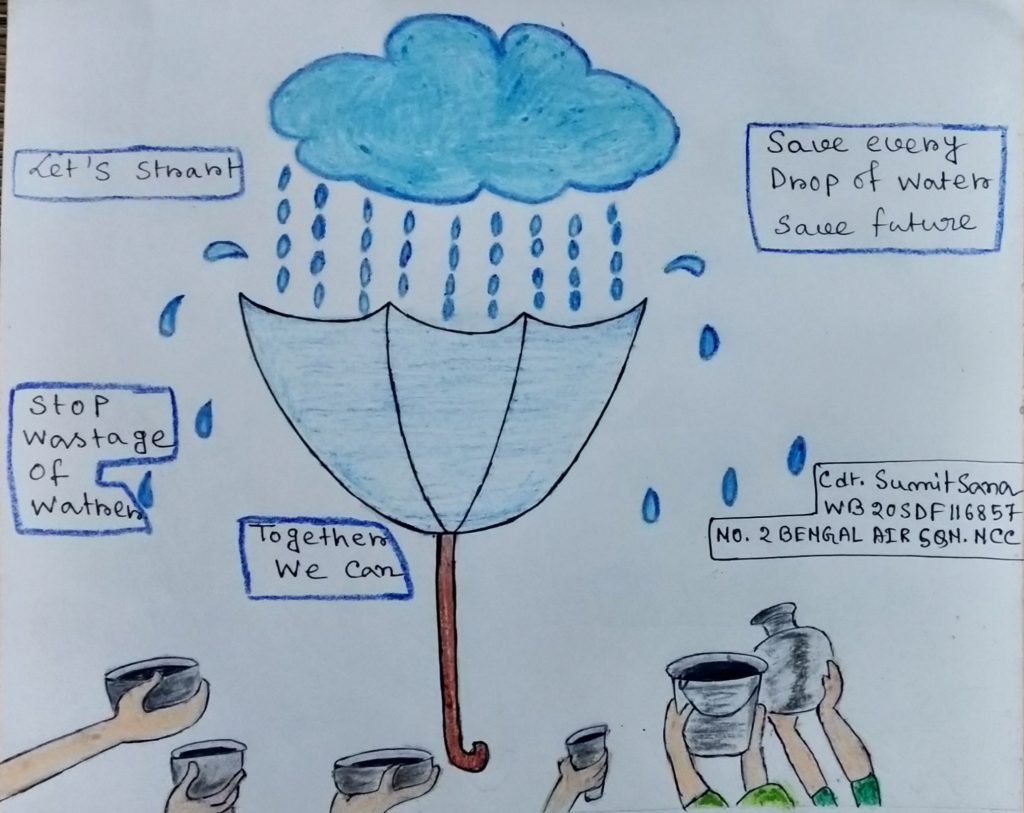 Let's Strart
Save every
Drop of water
Save future
Stop
Wastage
of
Wather
Together
We Can
Cdt. Sumit Sana
WB20SDF116857
NO. 2 BENGAL AIR SQN. NCC